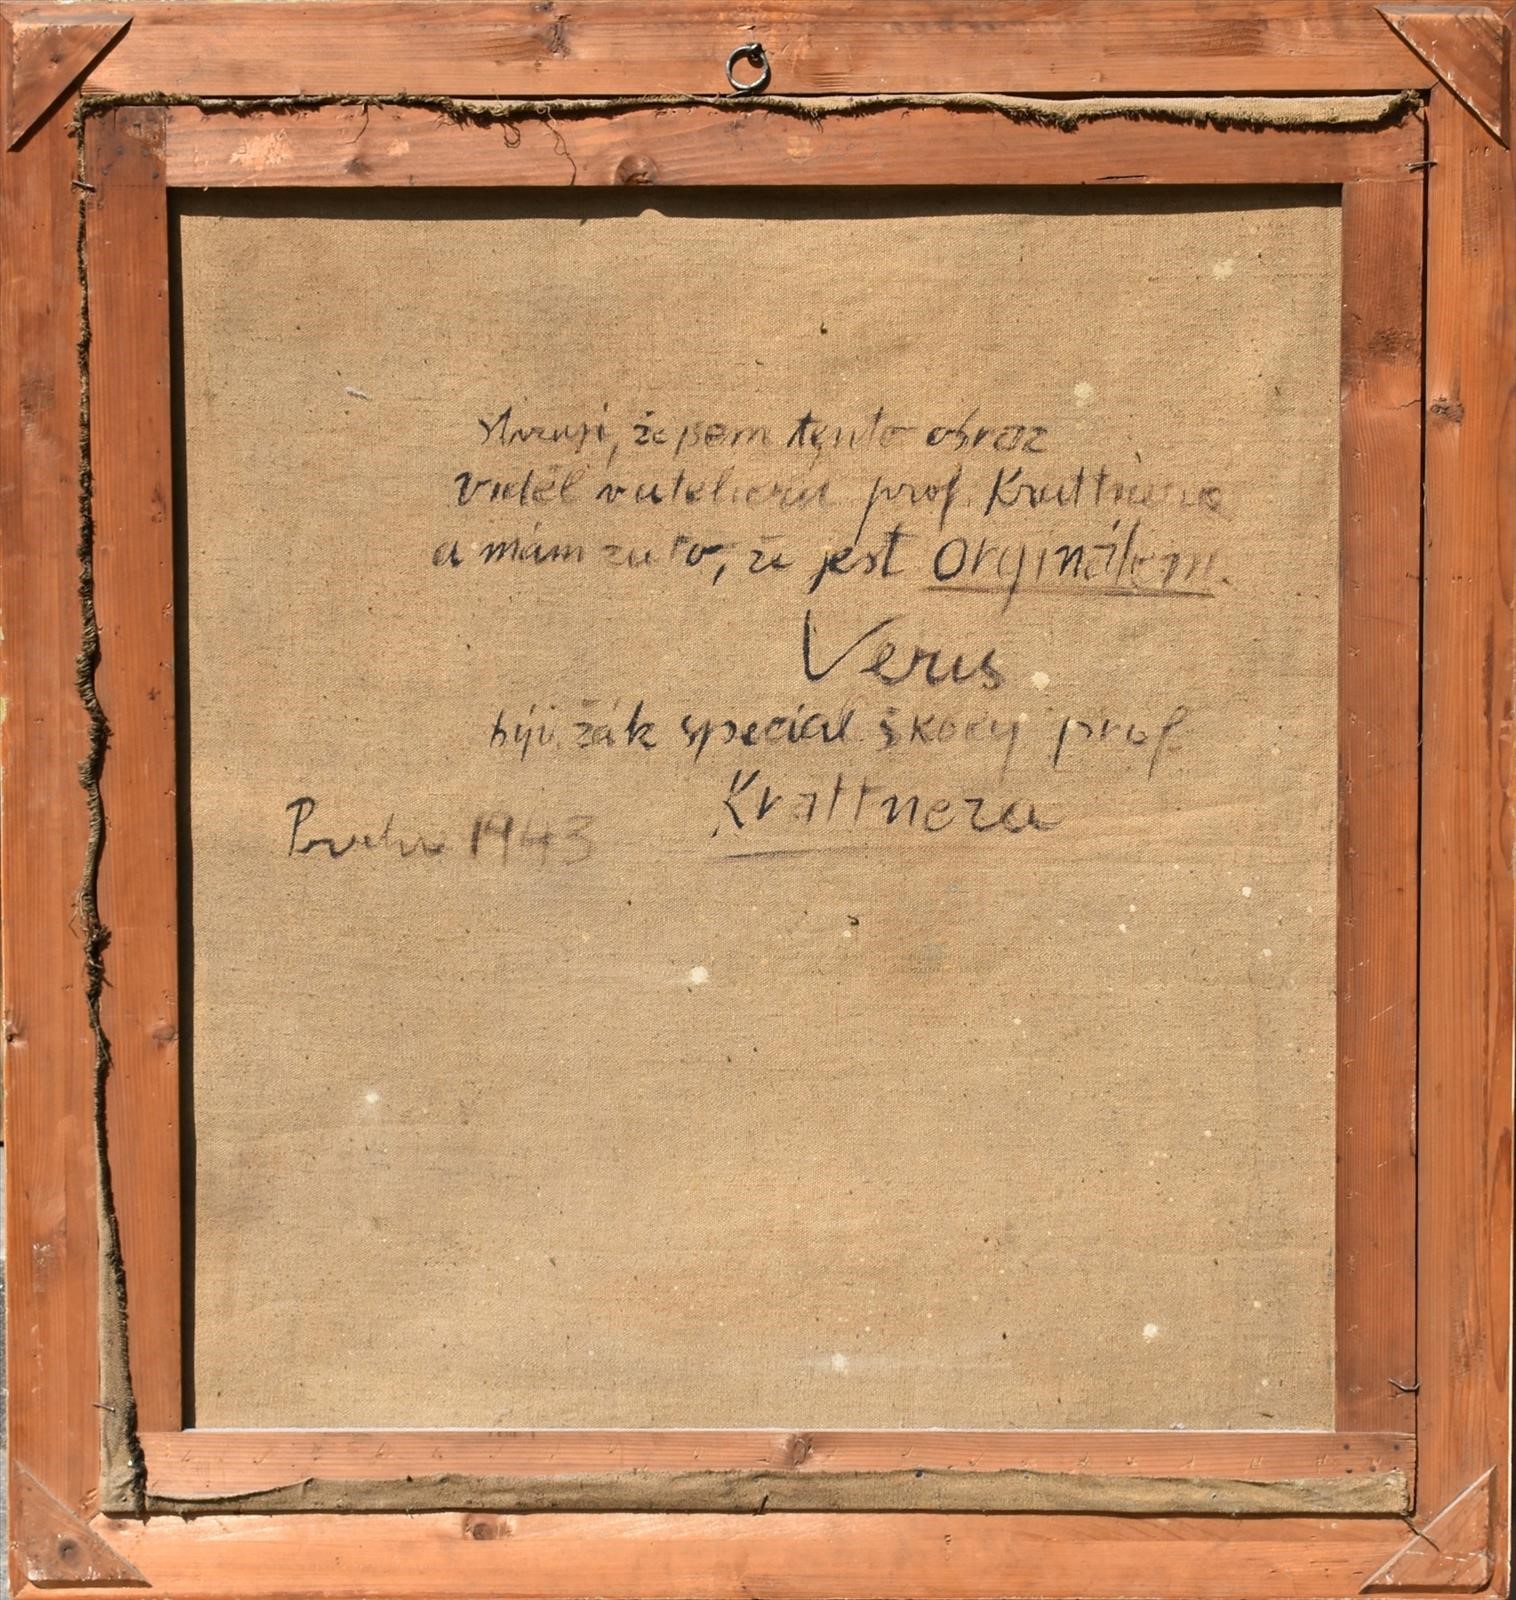 stvrzuji, že jsem tento obraz
viděl v atelieru prof. Krattnera
a mám za to, že jest orginálem.
Veris
býv. žák special školy prof
Krattnera
Praha 1943